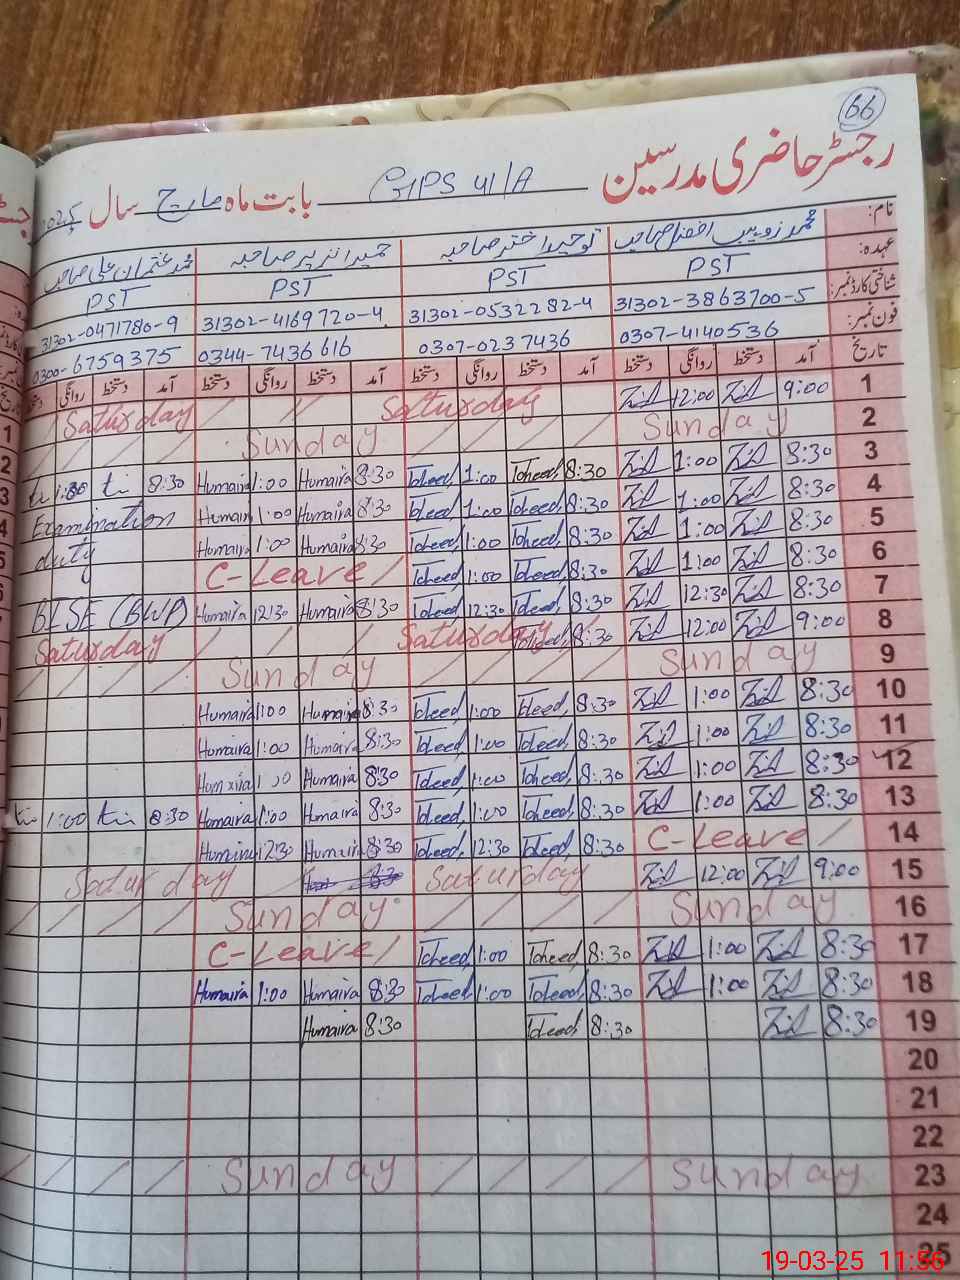 66
رجسٹر حاضری مدرسین GPS 41/A بابت ماہ مارچ سال 2025
نام: محمد زوہیب افضل صاحب توحید اختر صاحبہ حمیرا نذیر صاحبہ محمد عثمان علی صاحب
عہدہ: PST PST PST PST
شناختی کارڈ نمبر: 31302-3863700-5 31302-0532282-4 31302-4169720-4 31302-0471780-9
فون نمبر: 0307-4140536 0307-0237436 0344-7436616 0300-6759375
تاریخ آمد دستخط روانگی دستخط آمد دستخط روانگی دستخط آمد دستخط روانگی دستخط آمد دستخط روانگی
Saturday Saturday 12:00 9:00 1
Sunday Sunday 2
1:00 8:30 Humaira 1:00 Humaira 8:30 Toheed 1:00 Toheed 8:30 1:00 8:30 3
Examination Humaira 1:00 Humaira 8:30 Toheed 1:00 Toheed 8:30 1:00 8:30 4
duty Humaira 1:00 Humaira 8:30 Toheed 1:00 Toheed 8:30 1:00 8:30 5
C-Leave Toheed 1:00 Toheed 8:30 1:00 8:30 6
BISE (BWP) Humaira 12:30 Humaira 8:30 Toheed 12:30 Toheed 8:30 12:30 8:30 7
Saturday Saturday 8:30 12:00 9:00 8
Sunday Sunday 9
Humaira 1:00 Humaira 8:30 Toheed 1:00 Toheed 8:30 1:00 8:30 10
Humaira 1:00 Humaira 8:30 Toheed 1:00 Toheed 8:30 1:00 8:30 11
Humaira 1:00 Humaira 8:30 Toheed 1:00 Toheed 8:30 1:00 8:30 12
1:00 8:30 Humaira 1:00 Humaira 8:30 Toheed 1:00 Toheed 8:30 1:00 8:30 13
Humaira 12:30 Humaira 8:30 Toheed 12:30 Toheed 8:30 C-Leave 14
Saturday Saturday 12:00 9:00 15
Sunday Sunday 16
C-Leave Toheed 1:00 Toheed 8:30 1:00 8:30 17
Humaira 1:00 Humaira 8:30 Toheed 1:00 Toheed 8:30 1:00 8:30 18
Humaira 8:30 Toheed 8:30 8:30 19
20
21
22
Sunday Sunday 23
24
25
19-03-25 11:56